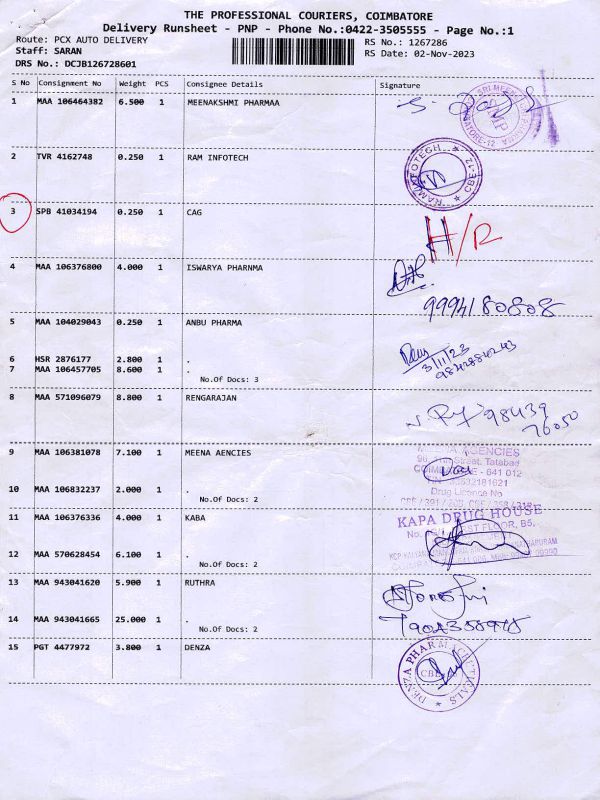 THE PROFESSIONAL COURIERS, COIMBATORE
Delivery Runsheet - PNP - Phone No.:0422-3505555 - Page No.:1
Route: PCX AUTO DELIVERY
RS No.: 1267286
Staff: SARAN
RS Date: 02-Nov-2023
DRS No.: DCJB126728601
S No Consignment No Weight PCS Consignee Details Signature
1 MAA 106464382 6.500 1 MEENAKSHMI PHARMAA
2 TVR 4162748 0.250 1 RAM INFOTECH
RAM INFOTECH
CBE-12
3 SPB 41034194 0.250 1 CAG H/R
4 MAA 106376800 4.000 1 ISWARYA PHARNMA
9994180808
5 MAA 104029043 0.250 1 ANBU PHARMA
3/11/23
6 HSR 2876177 2.800 1 .
7 MAA 106457705 8.600 1 .
No.Of Docs: 3
8 MAA 571096079 8.800 1 RENGARAJAN
98439
76050
9 MAA 106381078 7.100 1 MEENA AENCIES
MEENA AGENCIES
Street, Tatabad
COIMBATORE - 641 012
Drug Licence No
10 MAA 106832237 2.000 1 .
No.Of Docs: 2
11 MAA 106376336 4.000 1 KABA
KAPA DRUG HOUSE
FIRST FLOOR, B5,
12 MAA 570628454 6.100 1 .
No.Of Docs: 2
13 MAA 943041620 5.900 1 RUTHRA
14 MAA 943041665 25.000 1 .
No.Of Docs: 2
15 PGT 4477972 3.800 1 DENZA
DENZA PHARMACEUTICALS